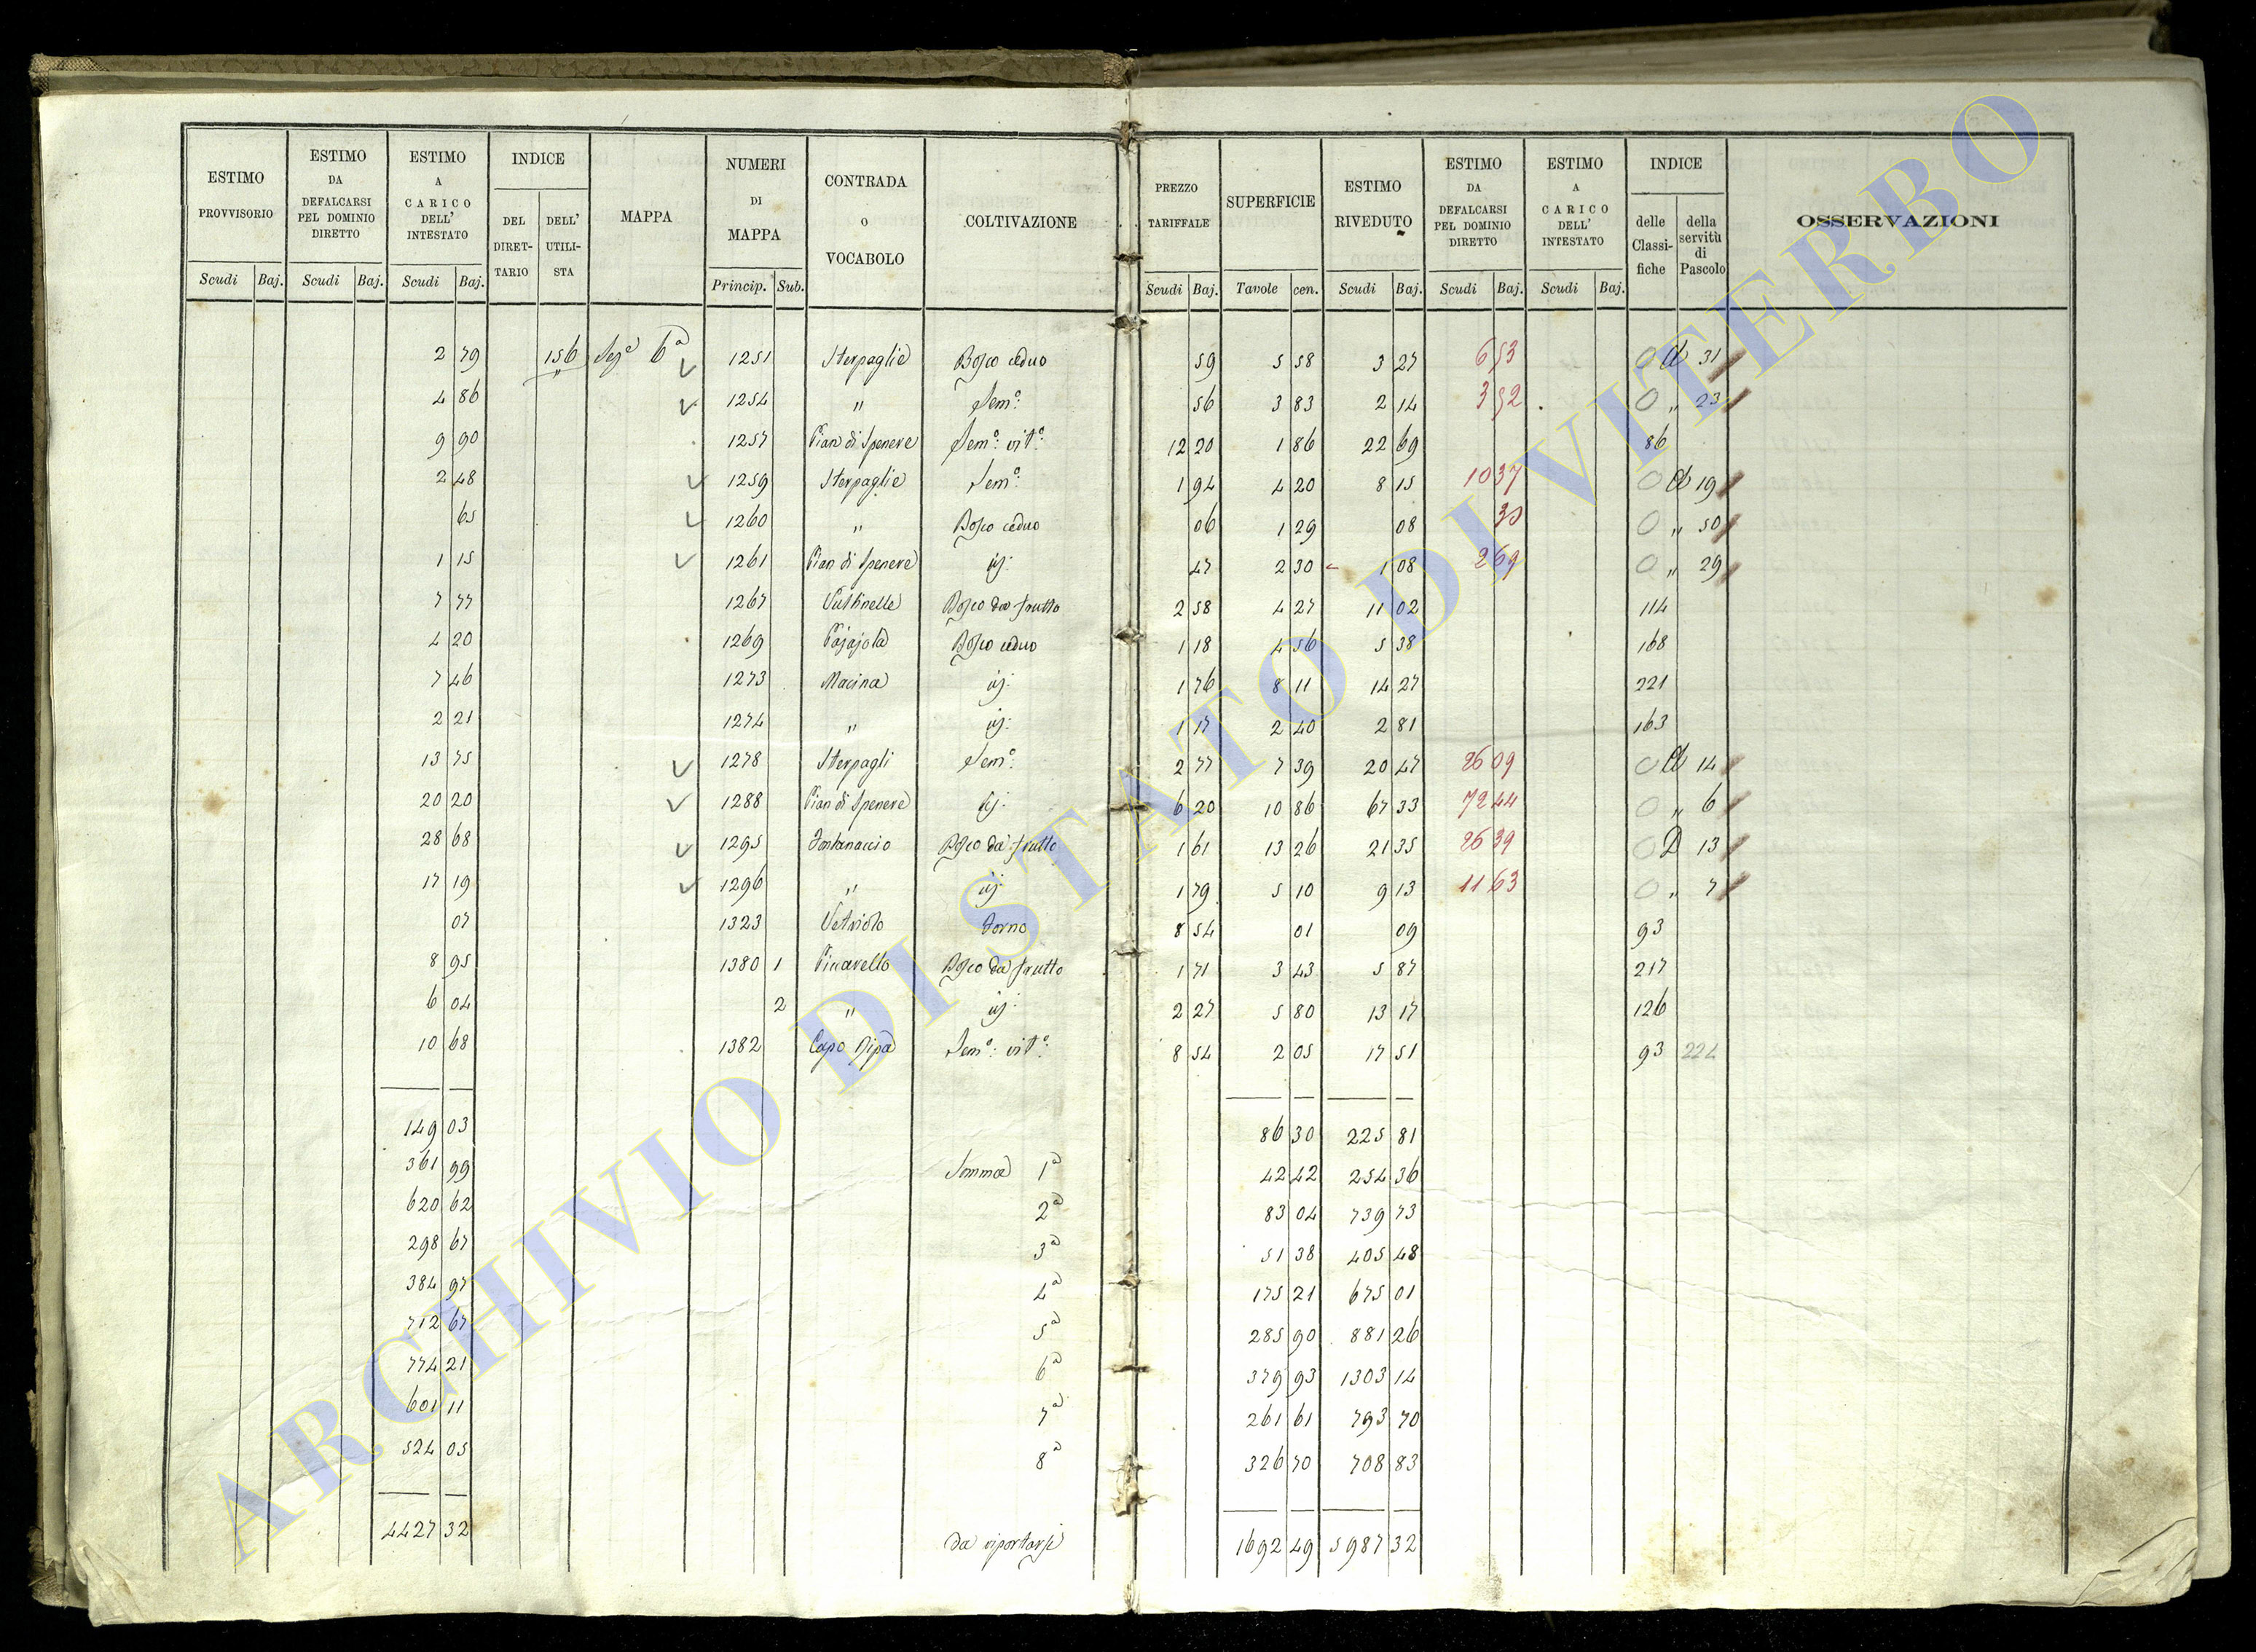 ESTIMO PROVVISORIO Scudi Baj. | ESTIMO DA DEFALCARSI PEL DOMINIO DIRETTO Scudi Baj. | ESTIMO A CARICO DELL' INTESTATO Scudi Baj. | INDICE DEL DIRET-TARIO | DELL' UTILI-STA | MAPPA | NUMERI DI MAPPA Princip. Sub. | CONTRADA O VOCABOLO | COLTIVAZIONE | PREZZO TARIFFALE Scudi Baj. | SUPERFICIE Tavole cen. | ESTIMO RIVEDUTO Scudi Baj. | ESTIMO DA DEFALCARSI PEL DOMINIO DIRETTO Scudi Baj. | ESTIMO A CARICO DELL' INTESTATO Scudi Baj. | INDICE delle Classi-fiche | della servitù di Pascolo | OSSERVAZIONI
2 79 156 Sez.e 6a 1251 Sterpaglie Bosco ceduo 59 5 58 3 27 6 53 0 31
4 86 1254 " Sem.o 56 3 83 2 14 3 92 0 " 23
9 90 1257 Pian di Speneve Sem.o vit.o 12 20 1 86 22 69 86
2 48 1259 Sterpaglie Sem.o 1 94 4 20 8 15 10 37 0 19
65 1260 " Bosco ceduo 06 1 29 08 0 " 50
1 15 1261 Pian di Speneve id: 47 2 30 1 08 2 69 0 " 29
7 77 1267 Bosco da frutto 2 58 4 27 11 02 114
4 20 1269 Bosco ceduo 1 18 4 56 5 38 168
7 46 1273 Macina id: 1 76 8 11 14 27 221
2 21 1274 " id: 1 17 2 40 2 81 163
13 75 1278 Sterpagli Sem.o 2 77 7 39 20 47 26 09 0 14
20 20 1288 Pian di Speneve id: 6 20 10 86 67 33 72 44 0 " 6
28 68 1295 Fontanaccio Bosco da frutto 1 61 13 26 21 35 26 39 0 D 13
17 19 1296 " id: 1 79 5 10 9 13 11 63 0 " 7
07 1323 Vetriolo Forno 8 54 01 09 93
8 95 1380 1 Piccarello Bosco da frutto 1 71 3 43 5 87 217
6 04 2 " id: 2 27 5 80 13 17 126
10 68 1382 Capo Ripa Sem.o vit.o 8 54 2 05 17 51 93 224
149 03 86 30 225 81
361 99 Somma 1a 42 42 254 36
620 62 2a 83 04 739 73
298 67 3a 51 38 405 48
384 97 4a 175 21 675 01
712 67 5a 285 90 881 26
774 21 6a 379 93 1303 14
601 11 7a 261 61 793 70
524 05 8a 326 70 708 83
4427 32 da riportarsi 1692 49 5987 32
ARCHIVIO DI STATO DI VITERBO